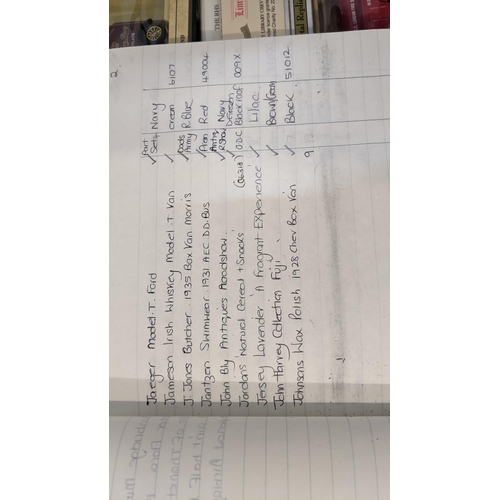 2
Part
Jaeger Model.T. Ford ✓ Sets Navy
Jameson Irish Whiskey Model.T Van ✓ cream 6107
J. Jones Butcher .1935 Box Van Morris ✓ Dads Army R. Blue
Jantzen Swimwear .1931 AEC.D.D.Bus ✓ Red 49004
John Bly Antiques Roadshow. ✓ Navy
Jordans Natural Cereal + Snacks ODC Black roof 009X
Jersey Lavender 'A Fragrant Experience' ✓ Lilac
John Harvey Collection Fiji ✓ Brown/Cream
Johnsons Wax Polish 1928 Chev Box Van ✓ Black 51012
9